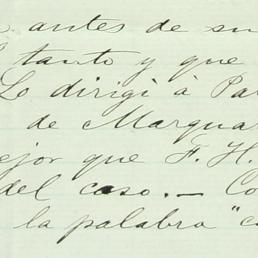 antes de su
tanto y que
Lo dirigí à Pa
de Marqua
ejor que F. H.
del caso.— Co
la palabra "c